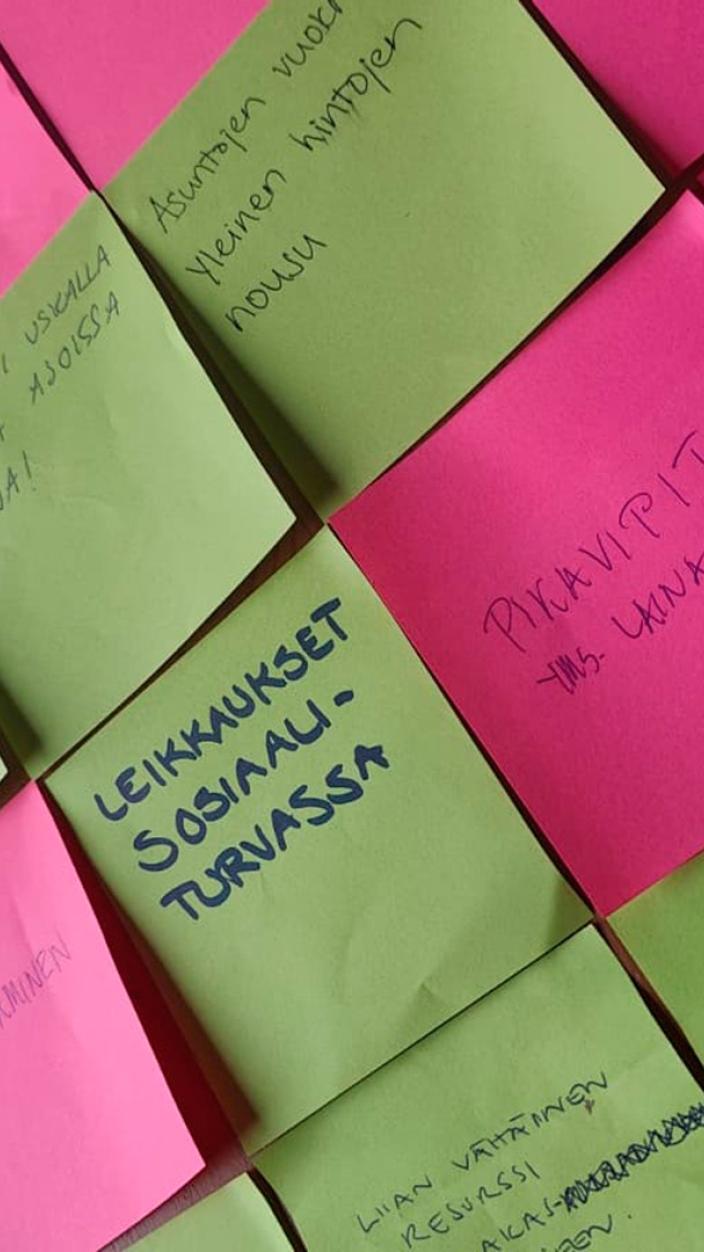 Asuntojen
Yleinen hintojen
nousu
USKALLA
ASOISSA
PIKAVIPIT
YMS. LAINA
LEIKKAUKSET
SOSIAALI-
TURVASSA
LIIAN VÄHÄINEN
RESURSSI